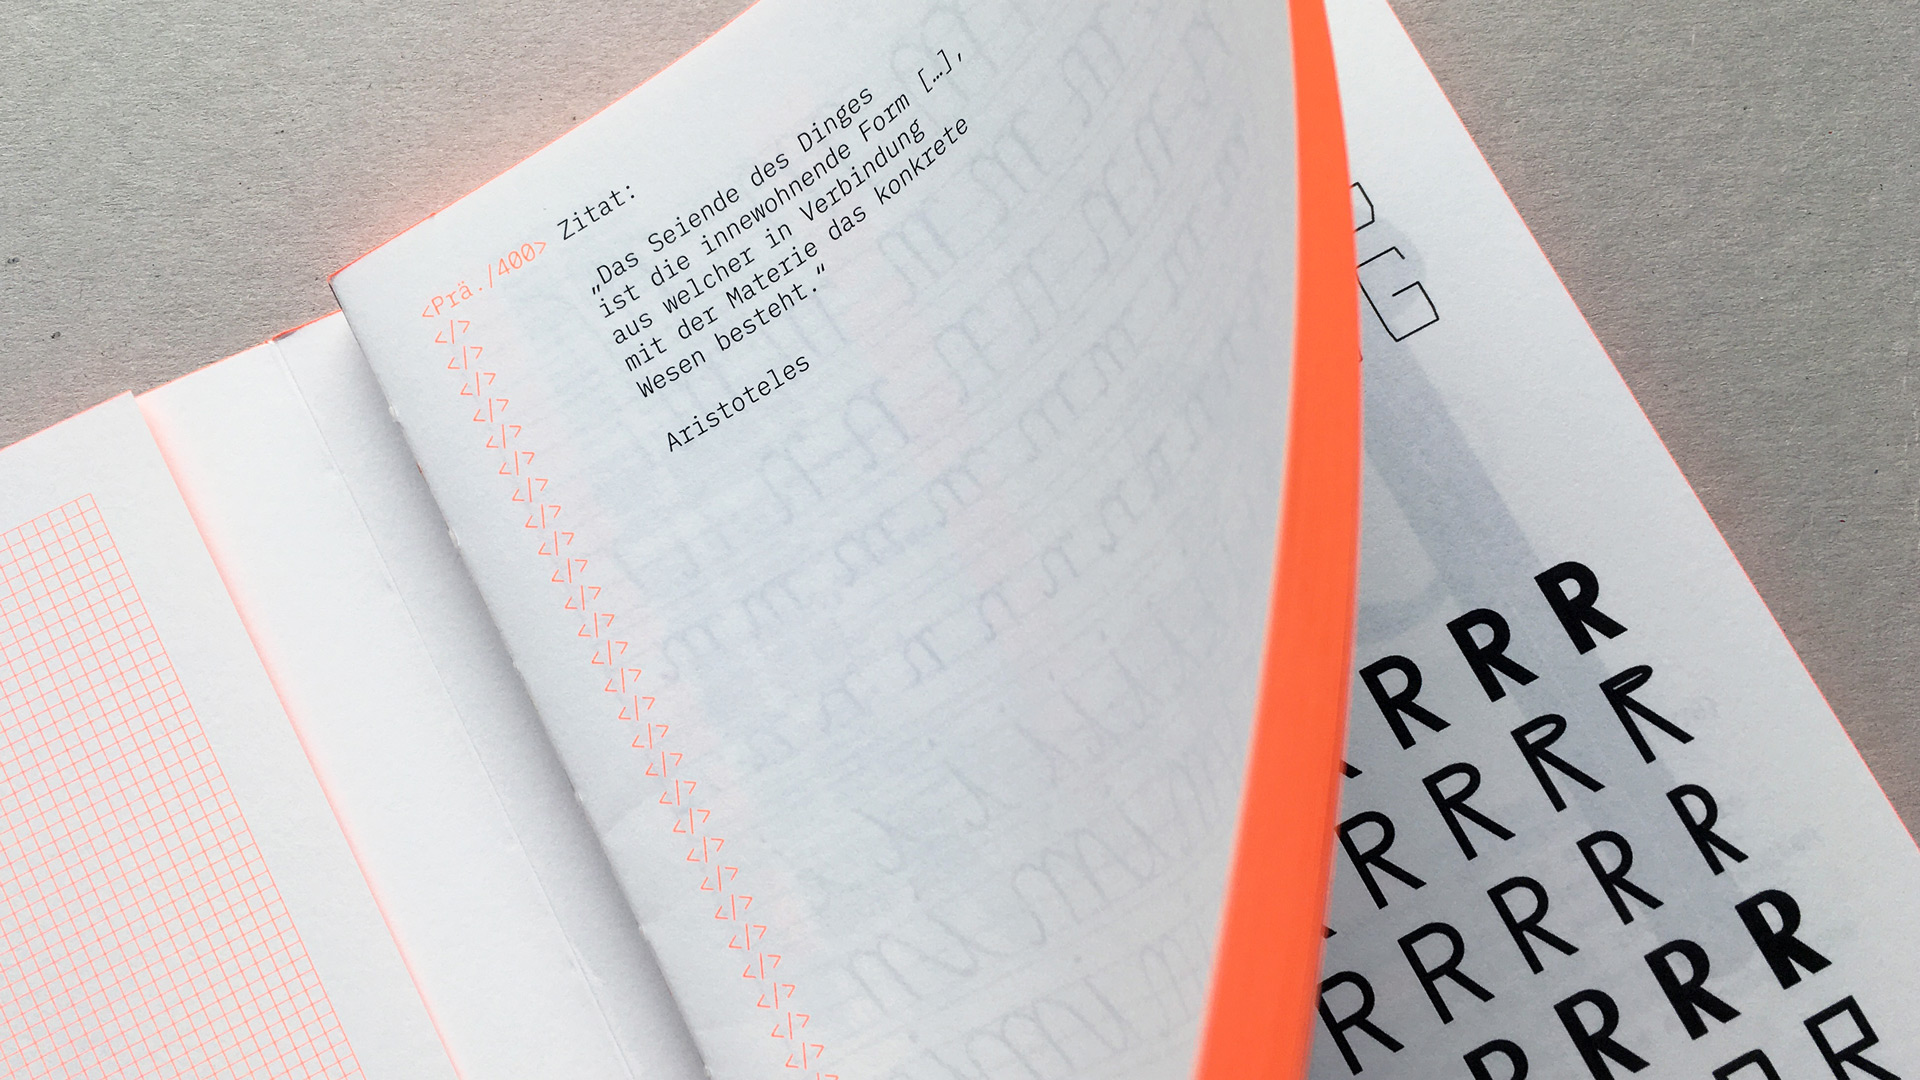 <Prä./400> Zitat:
„Das Seiende des Dinges
ist die innewohnende Form […],
aus welcher in Verbindung
mit der Materie das konkrete
Wesen besteht.“
Aristoteles
</>
</>
</>
</>
</>
</>
</>
</>
</>
</>
</>
</>
</>
</>
</>
</>
</>
</>
</>
</>
</>
</>
</>
</>
</>
</>
</>
</>
G
R R R
R R R R
R R R R R
R R R R
R